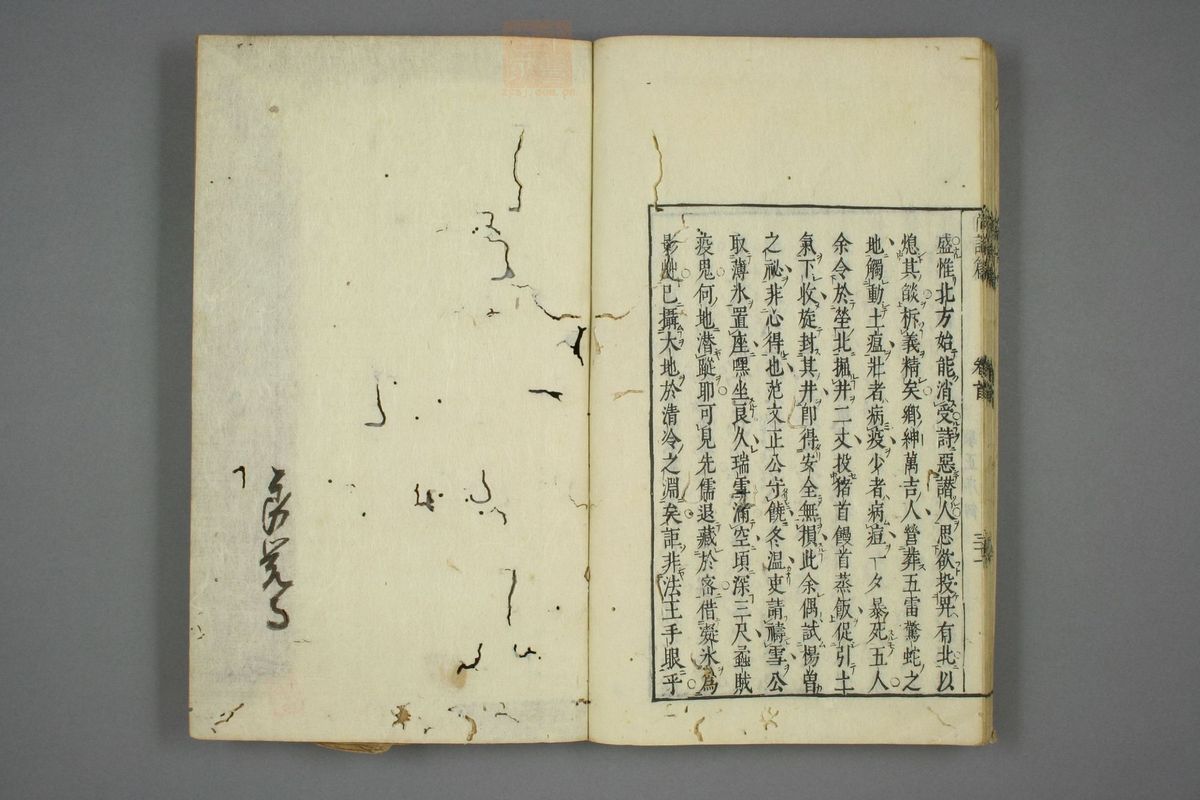 盛惟北方始能消受詩惡譖人思欲投畀有北以
熄其燄析義精矣鄉紳萬吉人營葬五雷驚蛇之
地觸動土瘟壯者病疫少者病痘一夕暴死五人
余令於塋北掘井二丈投猪首饅首蒸飯促引土
氣下收旋封其井卽得安全無損此余偶試楊曾
之祕非心得也范文正公守饒冬温吏請禱雪公
取薄氷置座嘿坐良久瑞雪滿空頃深三尺蝨賊
疫鬼何地潜蹤耶可見先儒退藏於密借凝氷爲
影艸已攝大地於清冷之淵矣詎非法王手眼乎
卷首